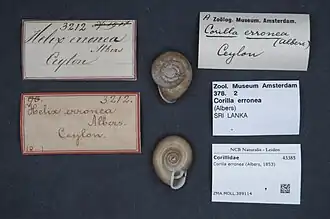 3212
Helix erronea
Albers
Ceylon
3212.
Helix erronea
Albers.
Ceylon.
Zoölog. Museum. Amsterdam.
Corilla erronea
(Albers)
Ceylon
Zool. Museum Amsterdam
378. 2
Corilla erronea
(Albers)
SRI LANKA
NCB Naturalis - Leiden
Corillidae 43385
Corilla erronea (Albers, 1853)
ZMA.MOLL.389114